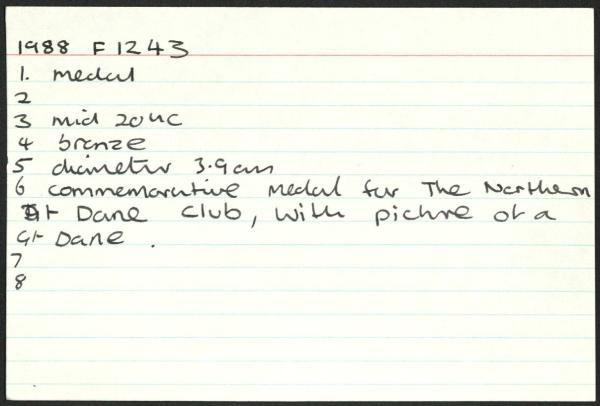 1988 F1243
1. medal
2
3 mid 20th C
4 bronze
5 diameter 3.9cm
6 commemorative medal for The Northern
Gt Dane Club, with picture of a
Gt Dane.
7
8